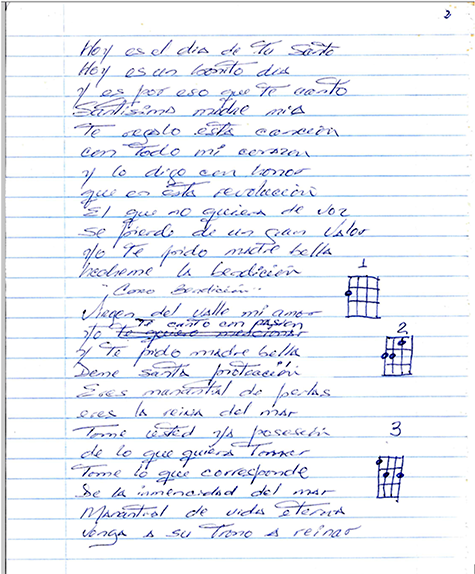 2
Hoy es el dia de tu santo
Hoy es un bonito dia
y es por eso que te canto
Santisima madre mia
Te regalo esta cancion
con todo mi corazon
y lo digo con honor
que es esta revelación
El que no quiera de voz
se pierde de un gran valor
yo te pido madre bella
hechame la bendición
"Coro Bendición"
Virgen del valle mi amor
te canto con pasion
yo te quiero
y te pido madre bella
Deme santa protección
Eres manantial de perlas
eres la reina del mar
Tome usted ya posesión
de lo que quiera tomar
Tome lo que corresponde
De la inmensidad del mar
Manantial de vida eterna
venga a su trono a reinar
1
2
3